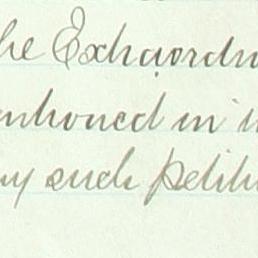 the Extraordin
entioned in
ny such petiti